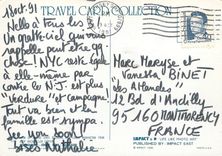 TRAVEL CARD COLLECTION
18 oct. 91
Hello à tous les 3!
Un gratte-ciel qui vous
rappelle peut être qq
chose! NYC reste égale
à elle-même par
contre le N.J. est plus
"verdure" et campagne!
Tout va bien et la
famille est sympa.
See you soon!
Bises Nathalie
Marc Maryse et
Vanessa BINET
12 Bd d'Andilly
95160 MONTMORENCY
FRANCE
IMPACT
PUBLISHED BY: IMPACT EAST